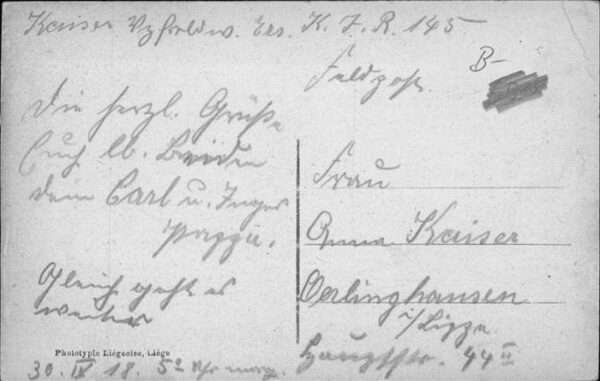 Kaiser Vzfeldw. Ers. K. I. R. 145
Feldpost.
B-
Die herzl. Grüße
Euch lb. Beiden
dein Carl u. Inges
Pappi.
Gleich geht es
weiter
Frau
Anna Kaiser
Oerlinghausen
i/Lippe
Hauptstr. 44 II
Phototypie Liégeoise, Liége
30. IX 18. 5° Uhr morg.